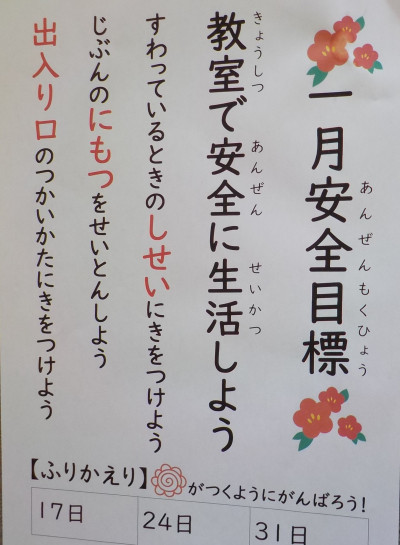 一月安全目標
あんぜんもくひょう
教室で安全に生活しよう
きょうしつ あんぜん せいかつ
すわっているときのしせいにきをつけよう
じぶんのにもつをせいとんしよう
出入り口のつかいかたにきをつけよう
【ふりかえり】がつくようにがんばろう!
17日 24日 31日